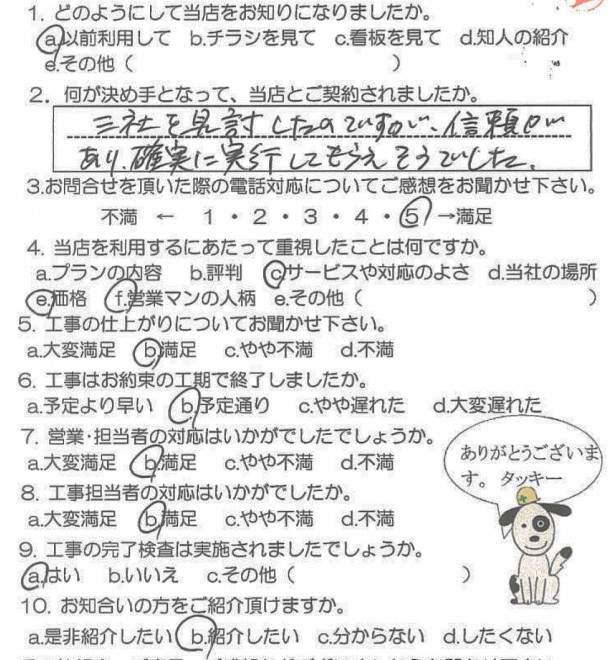 1. どのようにして当店をお知りになりましたか。
a.以前利用して b.チラシを見て c.看板を見て d.知人の紹介
e.その他（ ）
2. 何が決め手となって、当店とご契約されましたか。
三社を見討したのですが、信頼が
あり、確実に実行してもらえそうでした。
3.お問合せを頂いた際の電話対応についてご感想をお聞かせ下さい。
不満 ← 1・2・3・4・5 →満足
4. 当店を利用するにあたって重視したことは何ですか。
a.プランの内容 b.評判 c.サービスや対応のよさ d.当社の場所
e.価格 f.営業マンの人柄 e.その他（ ）
5. 工事の仕上がりについてお聞かせ下さい。
a.大変満足 b.満足 c.やや不満 d.不満
6. 工事はお約束の工期で終了しましたか。
a.予定より早い b.予定通り c.やや遅れた d.大変遅れた
7. 営業・担当者の対応はいかがでしたでしょうか。
a.大変満足 b.満足 c.やや不満 d.不満
ありがとうございま
す。 タッキー
8. 工事担当者の対応はいかがでしたか。
a.大変満足 b.満足 c.やや不満 d.不満
9. 工事の完了検査は実施されましたでしょうか。
a.はい b.いいえ c.その他（ ）
10. お知合いの方をご紹介頂けますか。
a.是非紹介したい b.紹介したい c.分からない d.したくない